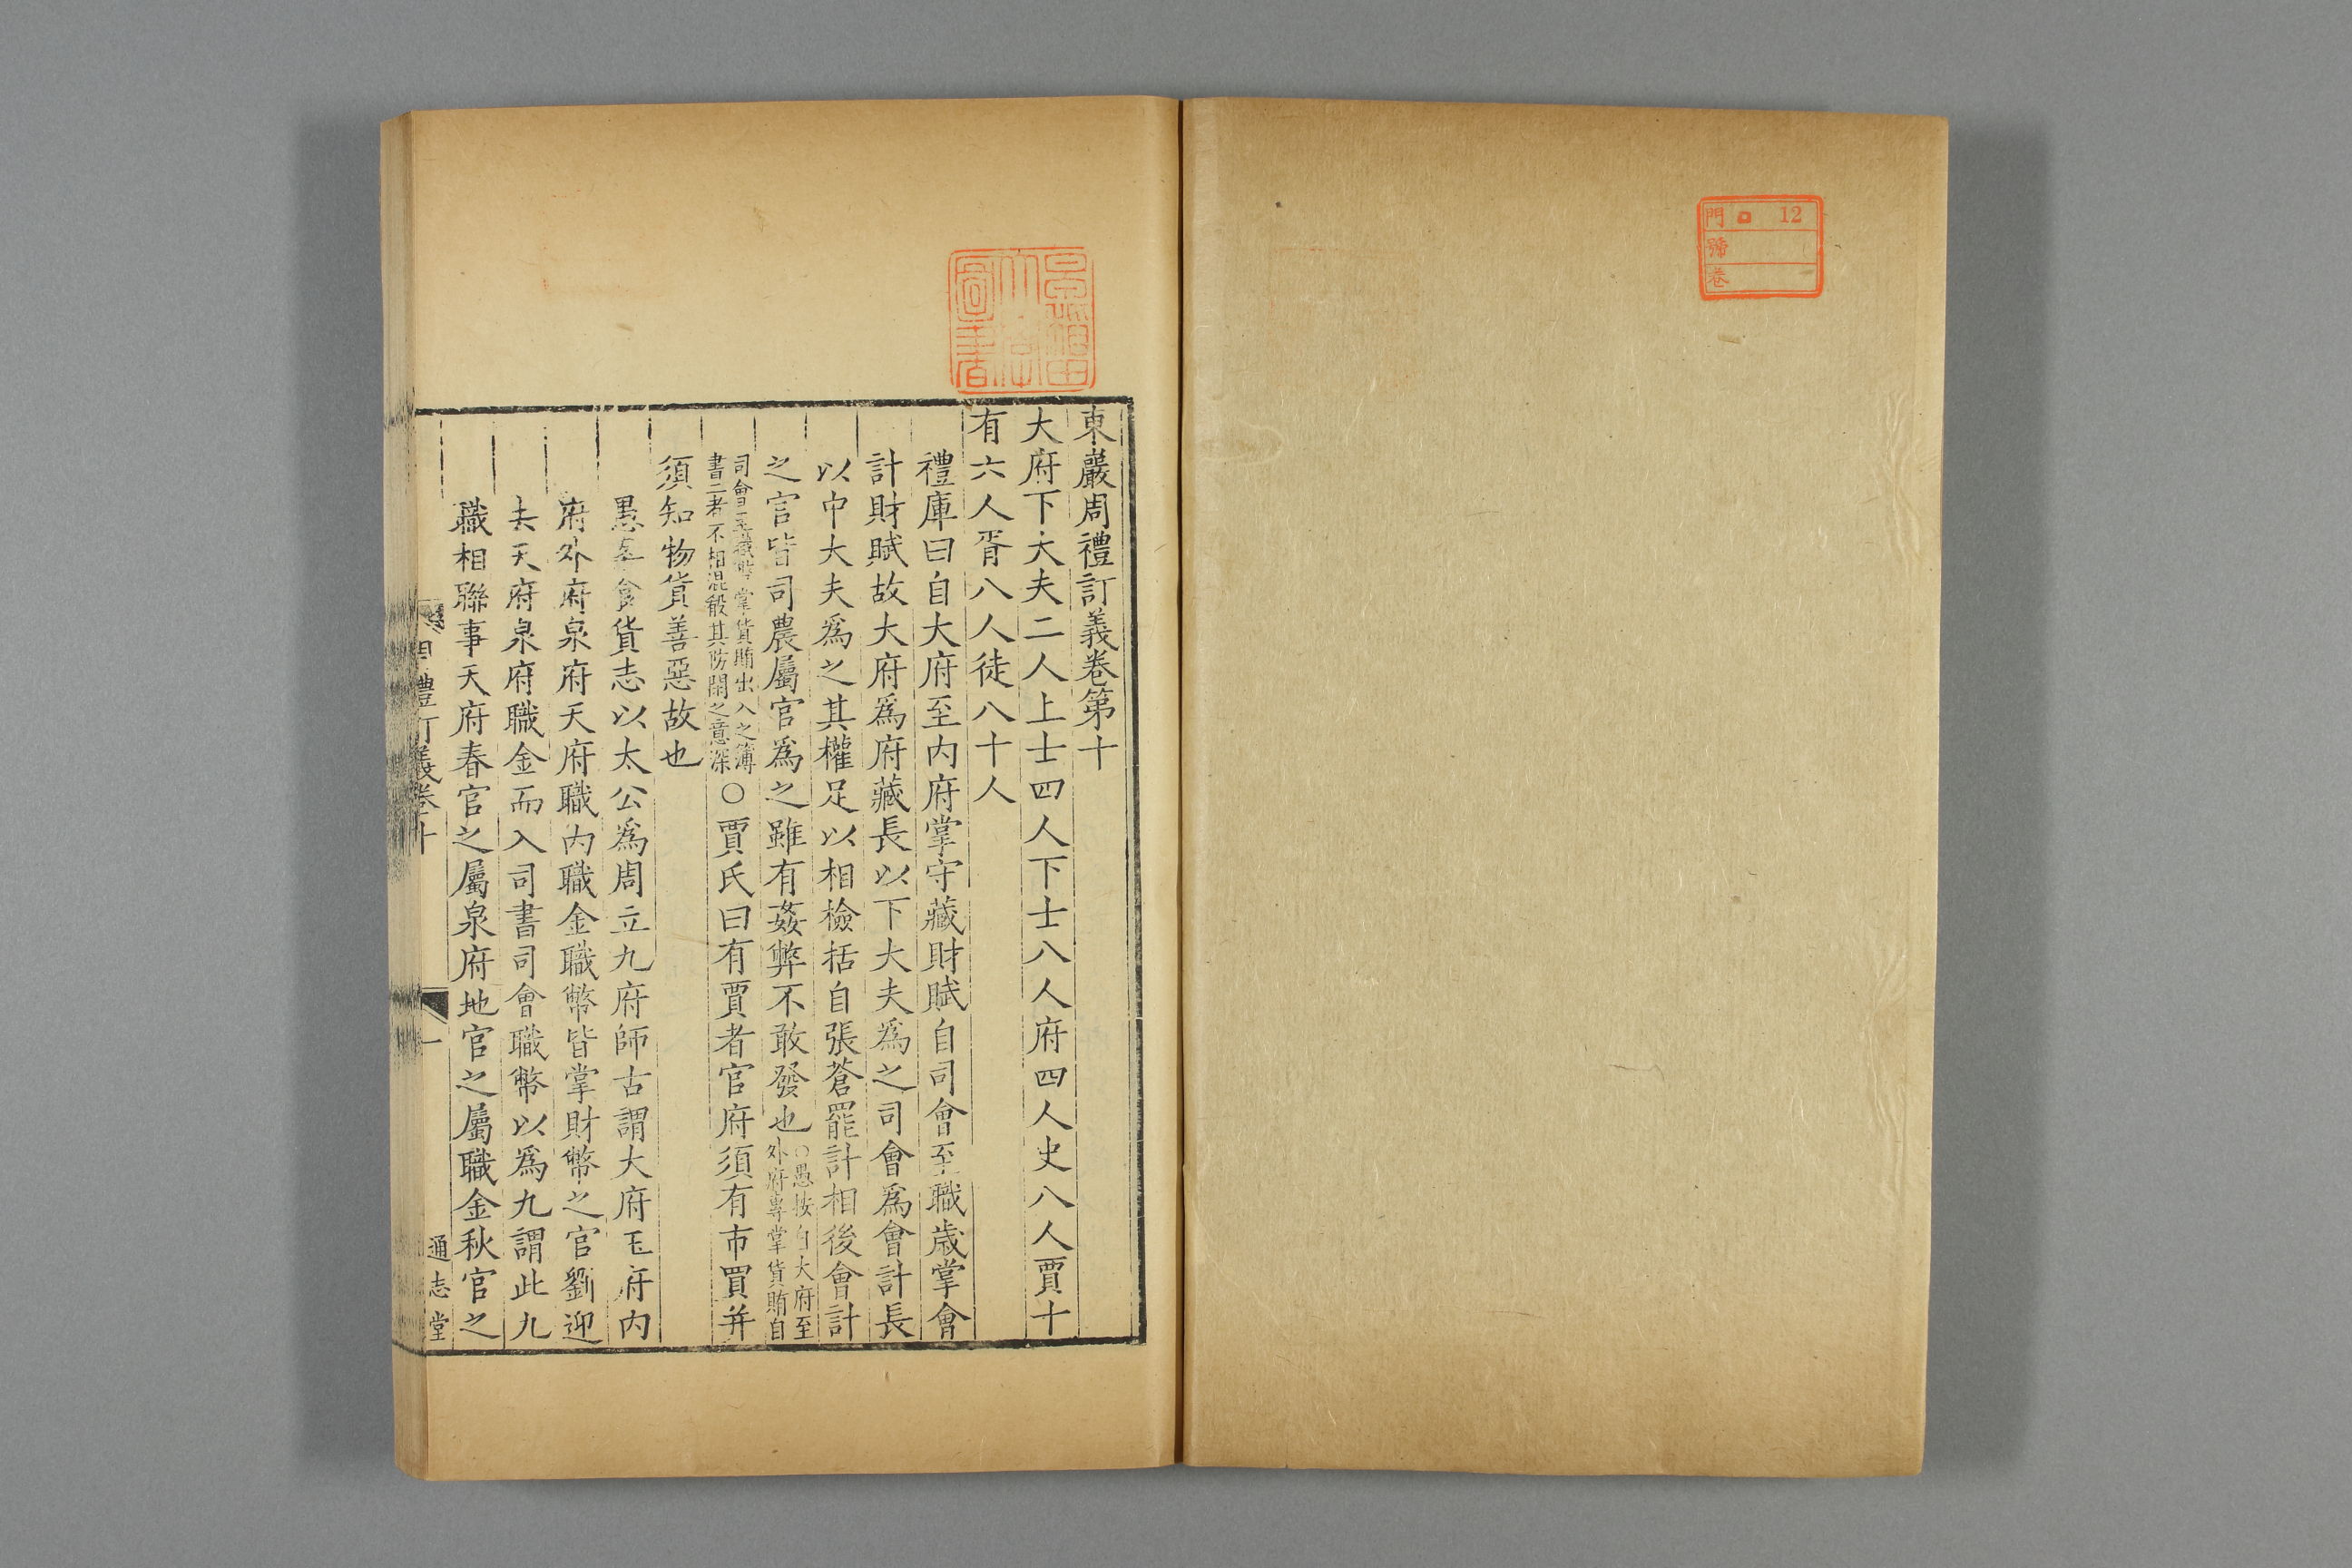 門 12
號
卷
早稻田
大學
圖書
東巖周禮訂義卷第十
大府下大夫二人上士四人下士八人府四人史八人賈十
有六人胥八人徒八十人
禮庫曰自大府至内府掌守藏財賦自司會至職歳掌會
計財賦故大府爲府藏長以下大夫爲之司會爲會計長
以中大夫爲之其權足以相檢括自張蒼罷計相後會計
之官皆司農屬官爲之雖有姦弊不敢發也
○愚按自大府至
外府專掌貨賄自
司會至職幣掌貨賄出入之簿
書二者不相混殽其防閑之意深
○賈氏曰有賈者官府須有市買并
須知物貨善惡故也
愚案食貨志以太公爲周立九府師古謂大府玉府内
府外府泉府天府職内職金職幣皆掌財幣之官劉迎
去天府泉府職金而入司書司會職幣以爲九謂此九
職相聯事天府春官之屬泉府地官之屬職金秋官之
禮訂義卷十
一
通志堂